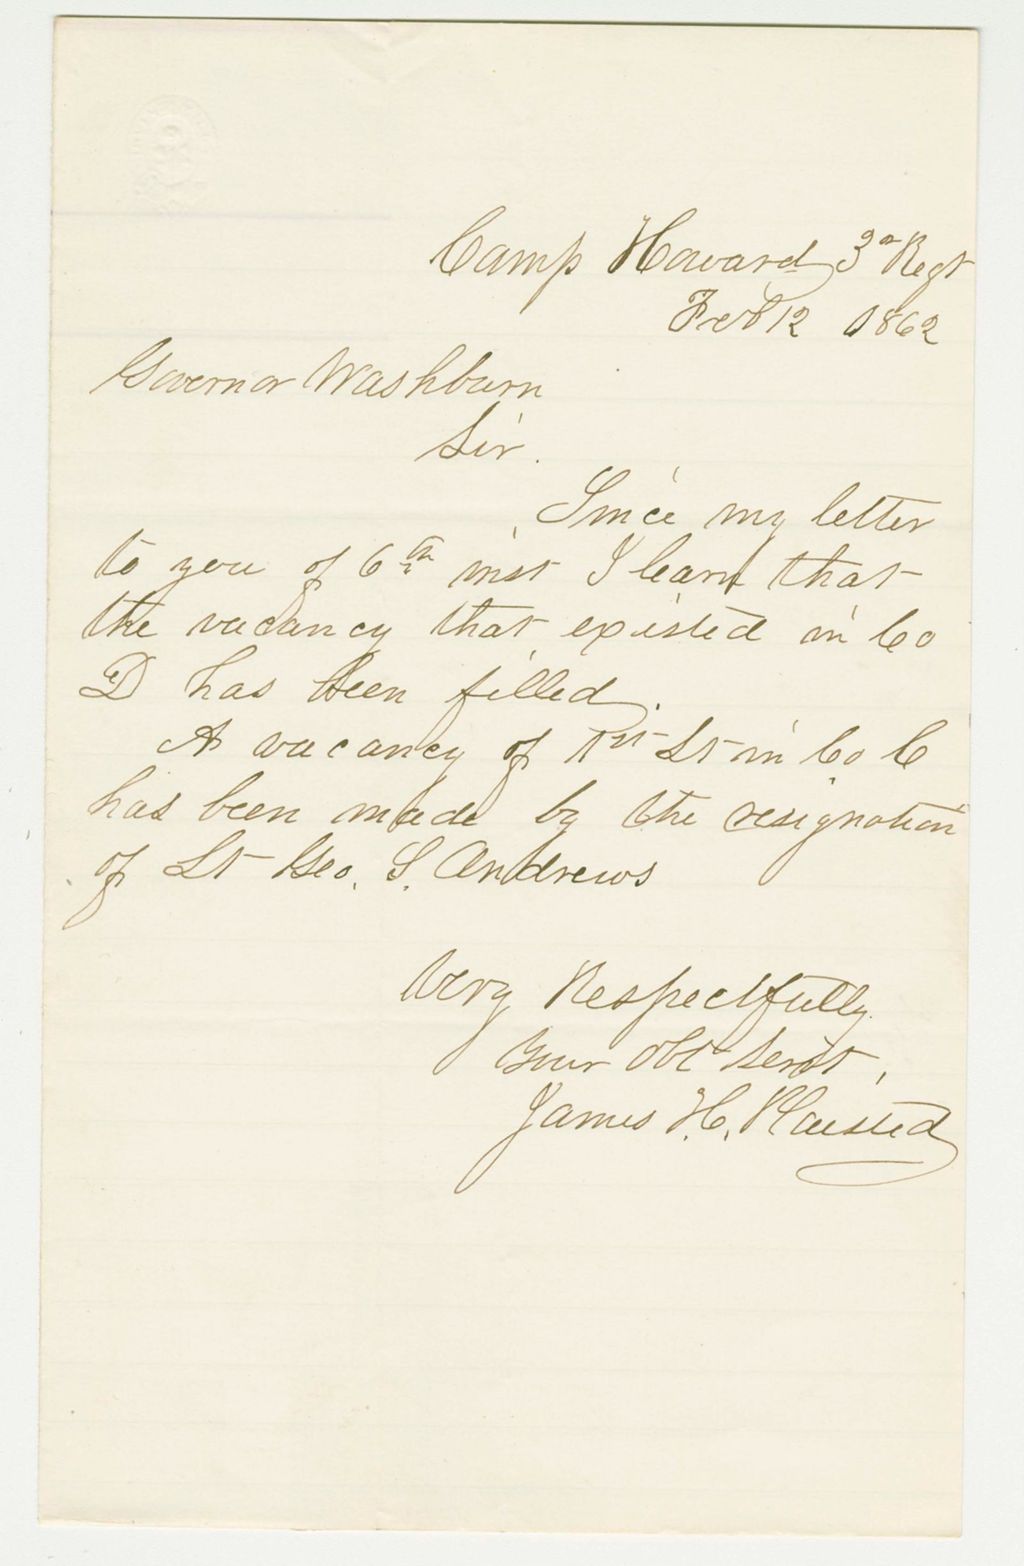 Camp Howard 3d Regt
Feb 12 1862
Governor Washburn
Sir.
Since my letter
to you of 6th inst I learn that
the vacancy that existed in Co
D has been filled.
A vacancy of 1st Lt in Co C
has been made by the resignation
of Lt Geo. S. Andrews
Very Respectfully
Your Obt Servt,
James H. Plaisted